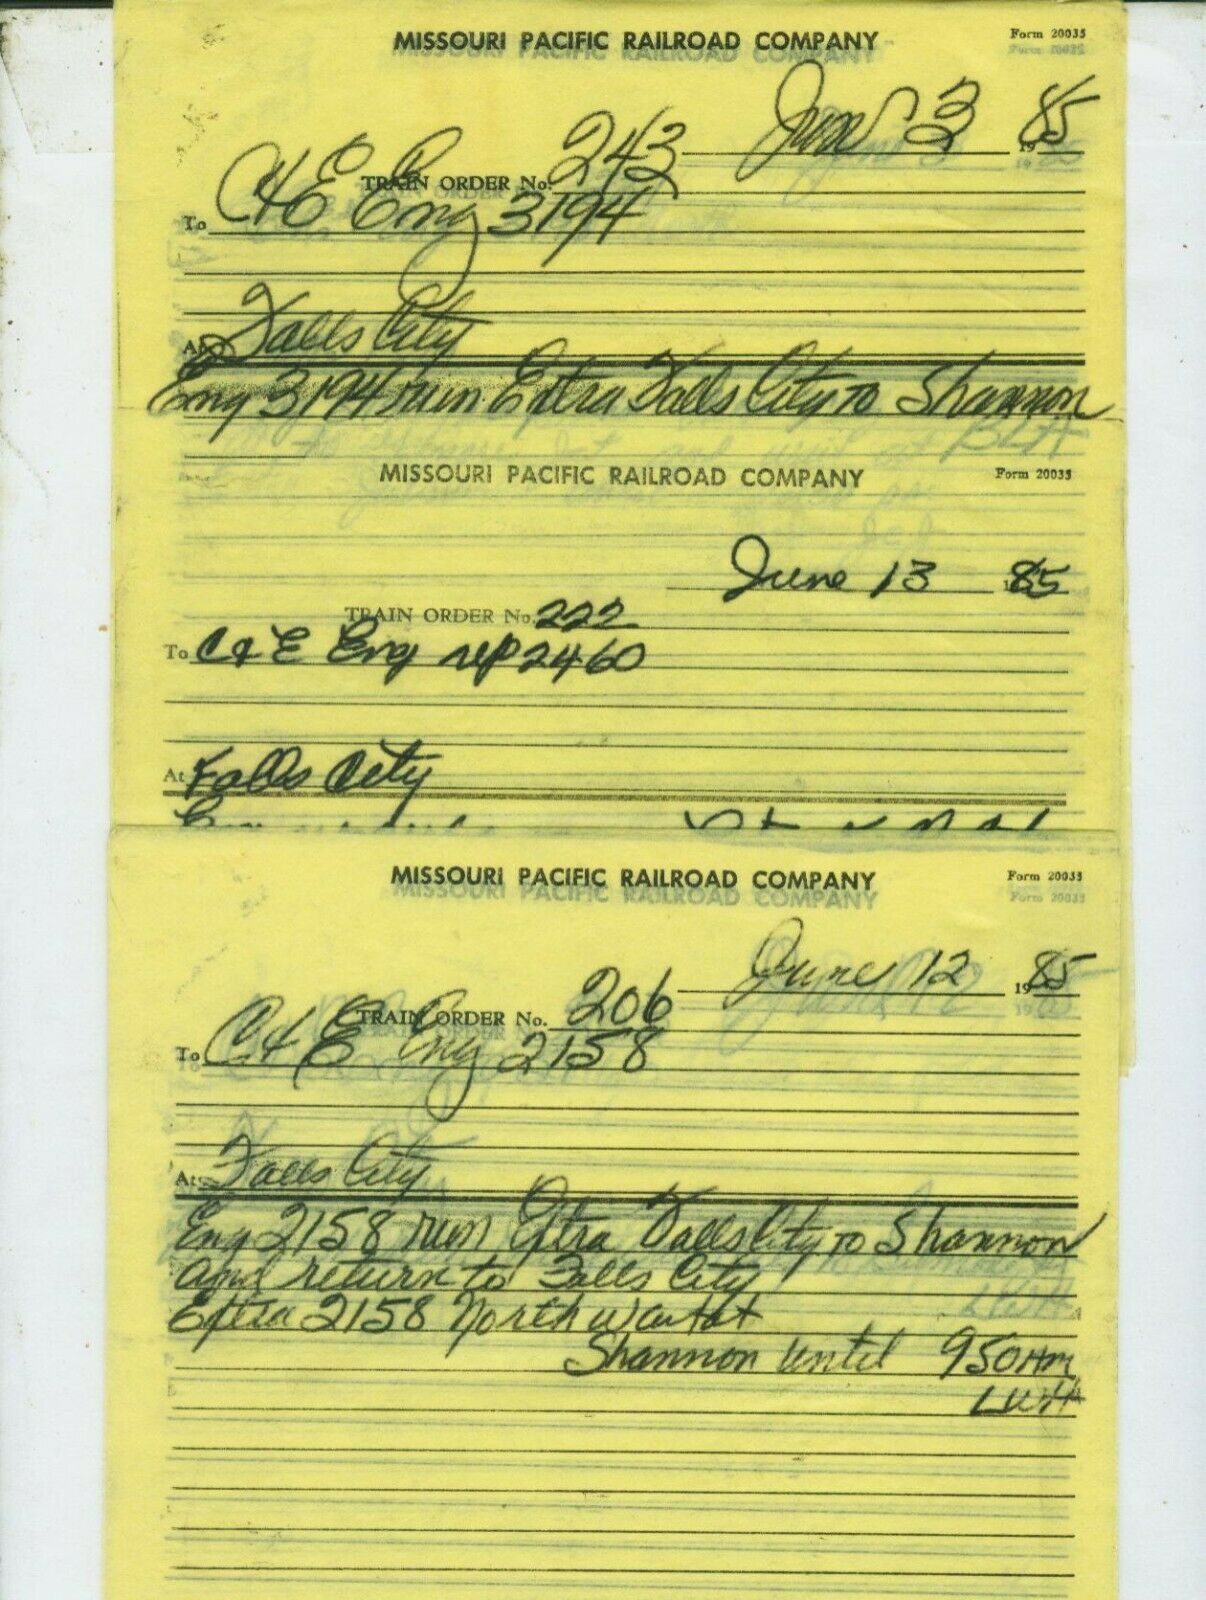 MISSOURI PACIFIC RAILROAD COMPANY
Form 20035
June 3 1985
TRAIN ORDER No. 243
To C&E Eng 3194
At Falls City
Eng 3194 run Extra Falls City to Shannon
BLH
MISSOURI PACIFIC RAILROAD COMPANY
Form 20035
June 13 1985
TRAIN ORDER No. 222
To C&E Eng up 2460
At Falls City
MISSOURI PACIFIC RAILROAD COMPANY
Form 20035
June 12 1985
TRAIN ORDER No. 206
To C&E Eng 2158
At Falls City
Eng 2158 run Extra Falls City to Shannon
and return to Falls City
Extra 2158 North wait at
Shannon until 950 AM
LWH